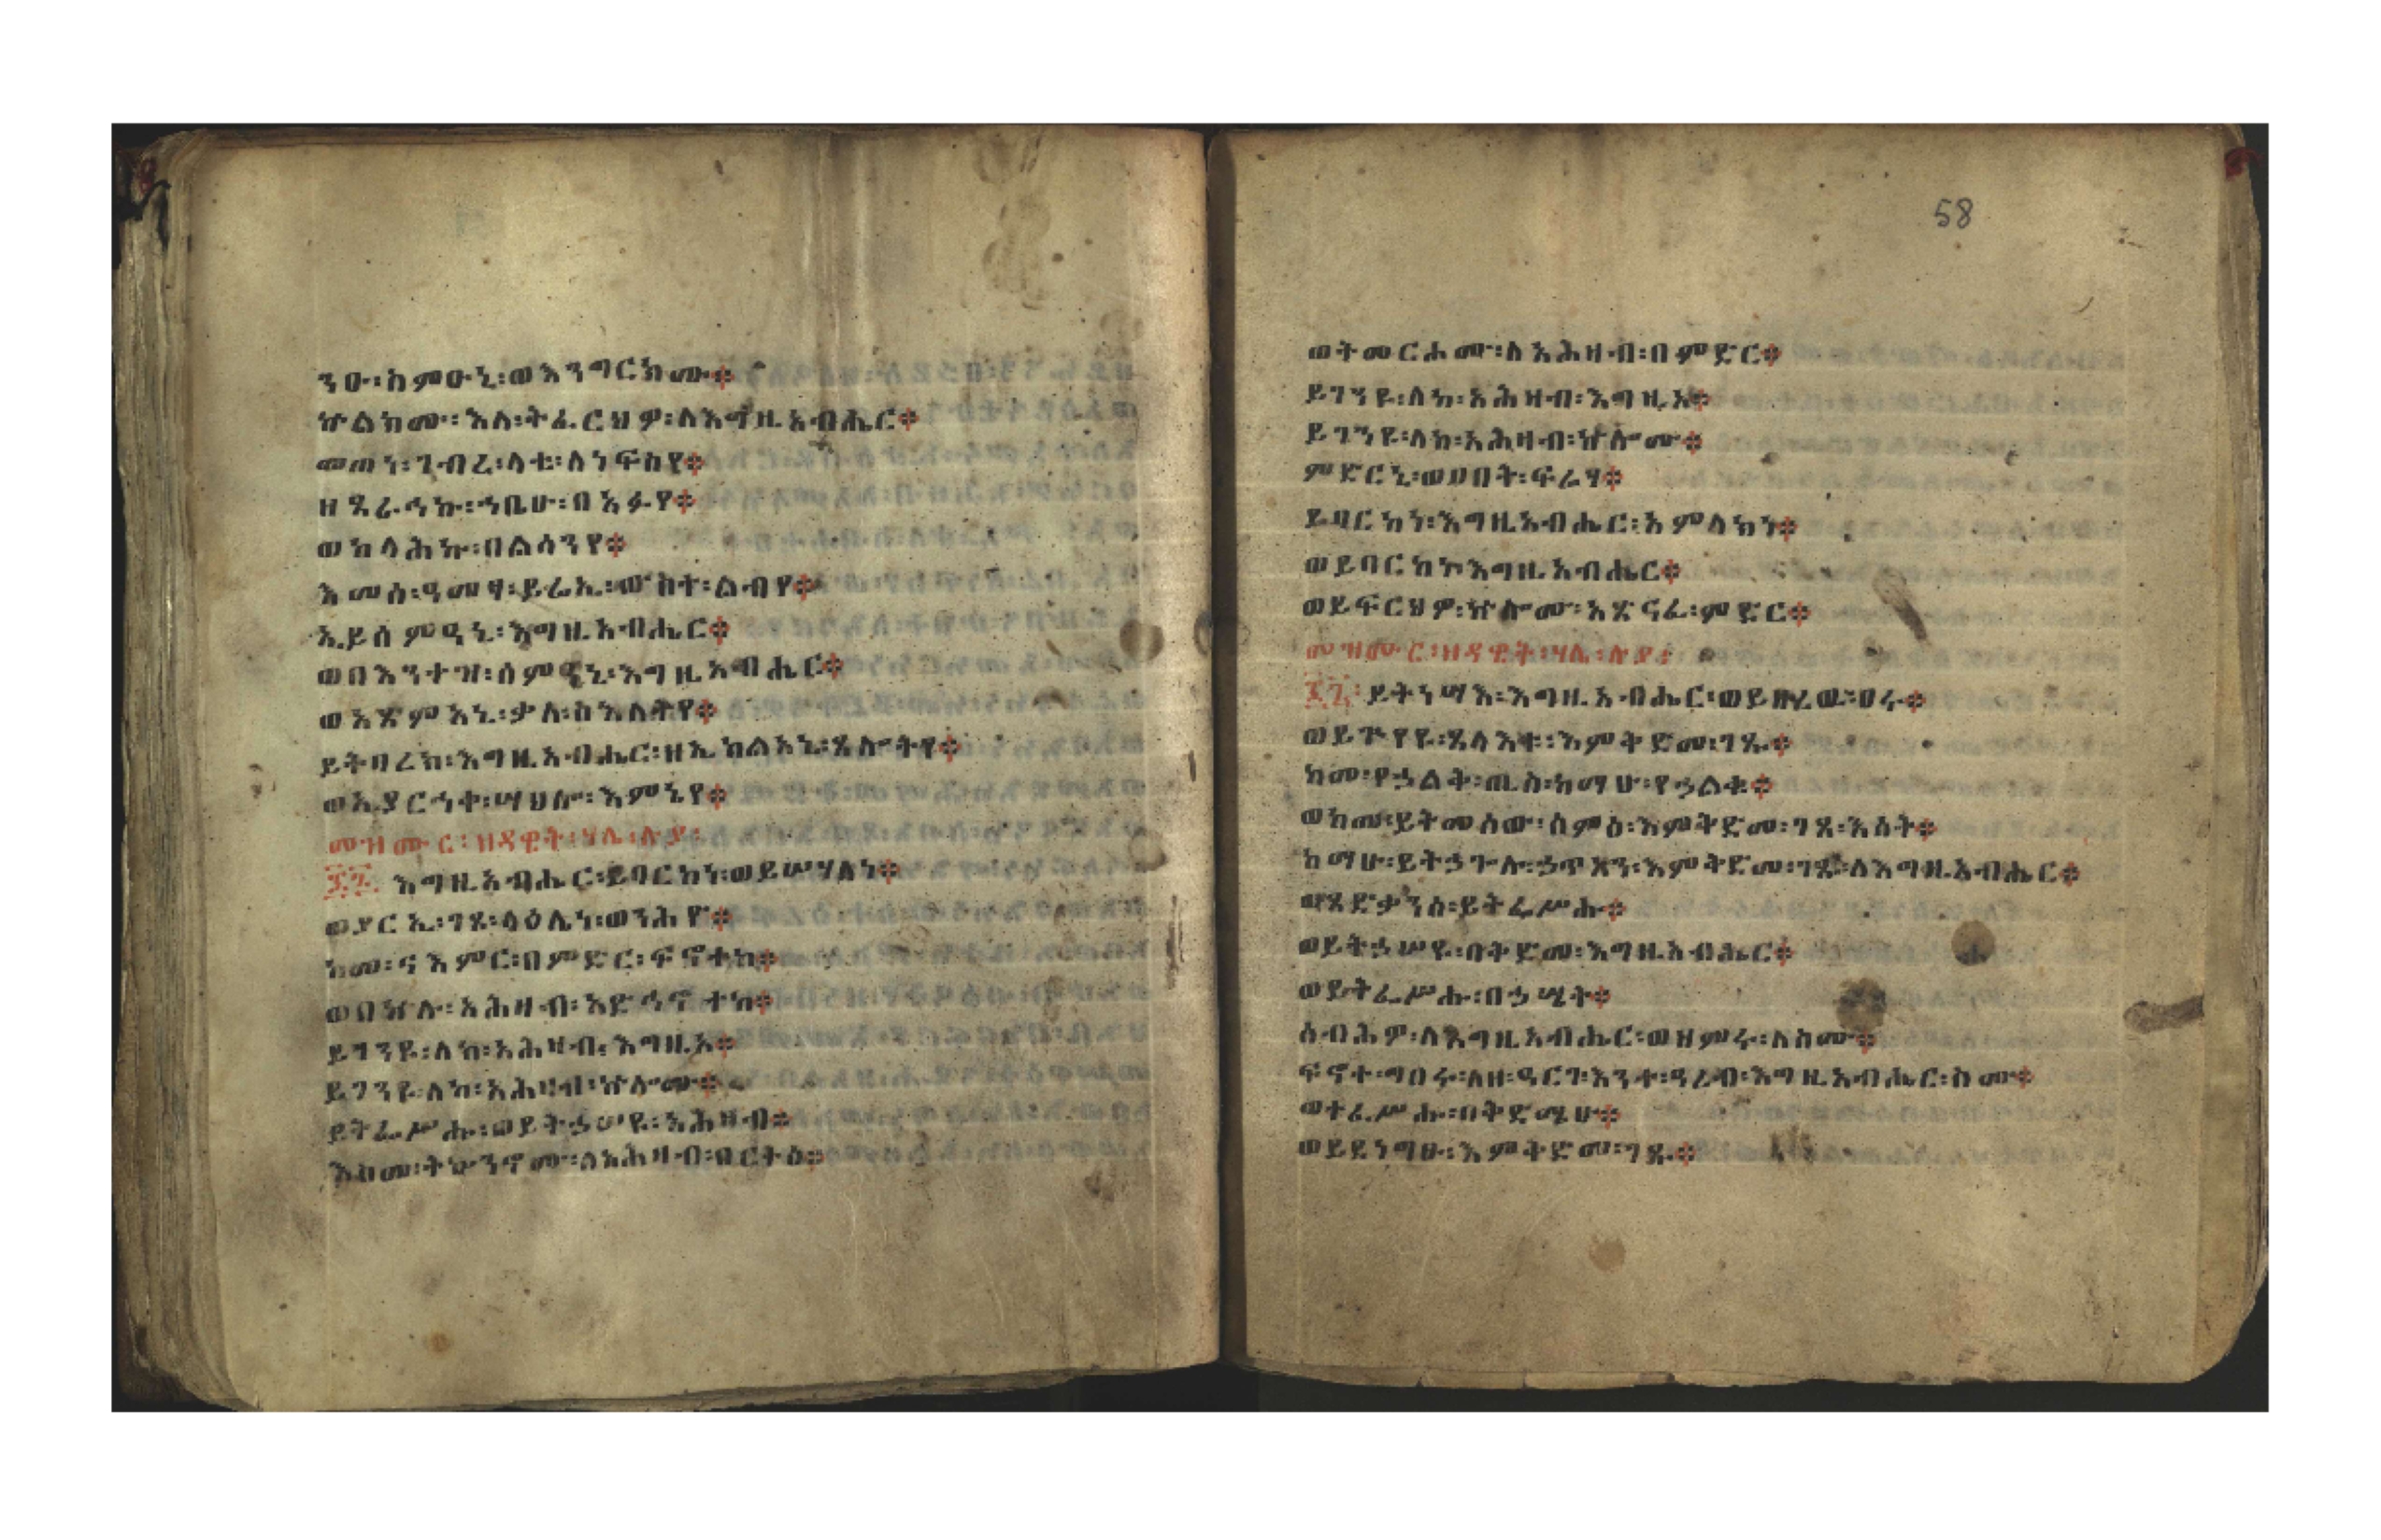 ንዑ፡ስምዑኒ፡ወእንግርክሙ፨
ኵልክሙ፡እለ፡ትፈርህዎ፡ለእግዚአብሔር፨
መጠነ፡ገብረ፡ላቲ፡ለነፍስየ፨
ዘጸራኅኩ፡ኀቤሁ፡በአፉየ፨
ወከላሕኩ፡በልሳንየ፨
እመሰ፡ዓመፃ፡ይሬኢ፡ውስተ፡ልብየ፨
ኢይሰምዓኒ፡እግዚአብሔር፨
ወበእንተዝ፡ሰምዓኒ፡እግዚአብሔር፨
ወአጽምአኒ፡ቃለ፡ስእለትየ፨
ይትባረክ፡እግዚአብሔር፡ዘኢከልአኒ፡ጸሎትየ፨
ወኢያርኀቀ፡ሣህሎ፡እምኔየ፨
መዝሙር፡ዘዳዊት፡ሃሌ፡ሉያ፡
፷፮ እግዚአብሔር፡ይባርከነ፡ወይሣሃለነ፨
ወያርኢ፡ገጾ፡ላዕሌነ፡ወንሕየው፨
ከመ፡ናእምር፡በምድር፡ፍኖተከ፨
ወበኵሉ፡አሕዛብ፡አድኅኖተከ፨
ይገንዩ፡ለከ፡አሕዛብ፡እግዚኦ፨
ይገንዩ፡ለከ፡አሕዛብ፡ኵሎሙ፨
ይትፌሥሑ፡ወይትኃሠዩ፡አሕዛብ፨
እስመ፡ትኴንኖሙ፡ለአሕዛብ፡በርትዕ፨
58
ወትመርሖሙ፡ለአሕዛብ፡በምድር፨
ይገንዩ፡ለከ፡አሕዛብ፡እግዚኦ፨
ይገንዩ፡ለከ፡አሕዛብ፡ኵሎሙ፨
ምድርኒ፡ወሀበት፡ፍሬሃ፨
ይባርከነ፡እግዚአብሔር፡አምላክነ፨
ወይባርከነ፡እግዚአብሔር፨
ወይፍርህዎ፡ኵሎሙ፡አጽናፈ፡ምድር፨
መዝሙር፡ዘዳዊት፡ሃሌ፡ሉያ፡
፷፯፡ይትነሣእ፡እግዚአብሔር፡ወይዘረዉ፡ፀሩ፨
ወይጕየዩ፡ጸላእቱ፡እምቅድመ፡ገጹ፨
ከመ፡የኃልቅ፡ጢስ፡ከማሁ፡የኃልቁ፨
ወከመ፡ይትመሰው፡ሰምዕ፡እምቅድመ፡ገጸ፡እሳት፨
ከማሁ፡ይትኃጐሉ፡ኃጥአን፡እምቅድመ፡ገጹ፡ለእግዚአብሔር፨
ወጻድቃንሰ፡ይትፌሥሑ፨
ወይትኃሠዩ፡በቅድመ፡እግዚአብሔር፨
ወይትፌሥሑ፡በኃሤት፨
ሰብሕዎ፡ለእግዚአብሔር፡ወዘምሩ፡ለስሙ፨
ፍኖተ፡ግበሩ፡ለዘ፡ዓርገ፡እንተ፡ዓረብ፡እግዚአብሔር፡ስሙ፨
ወተፈሥሑ፡በቅድሜሁ፨
ወይደነግፁ፡እምቅድመ፡ገጹ፨